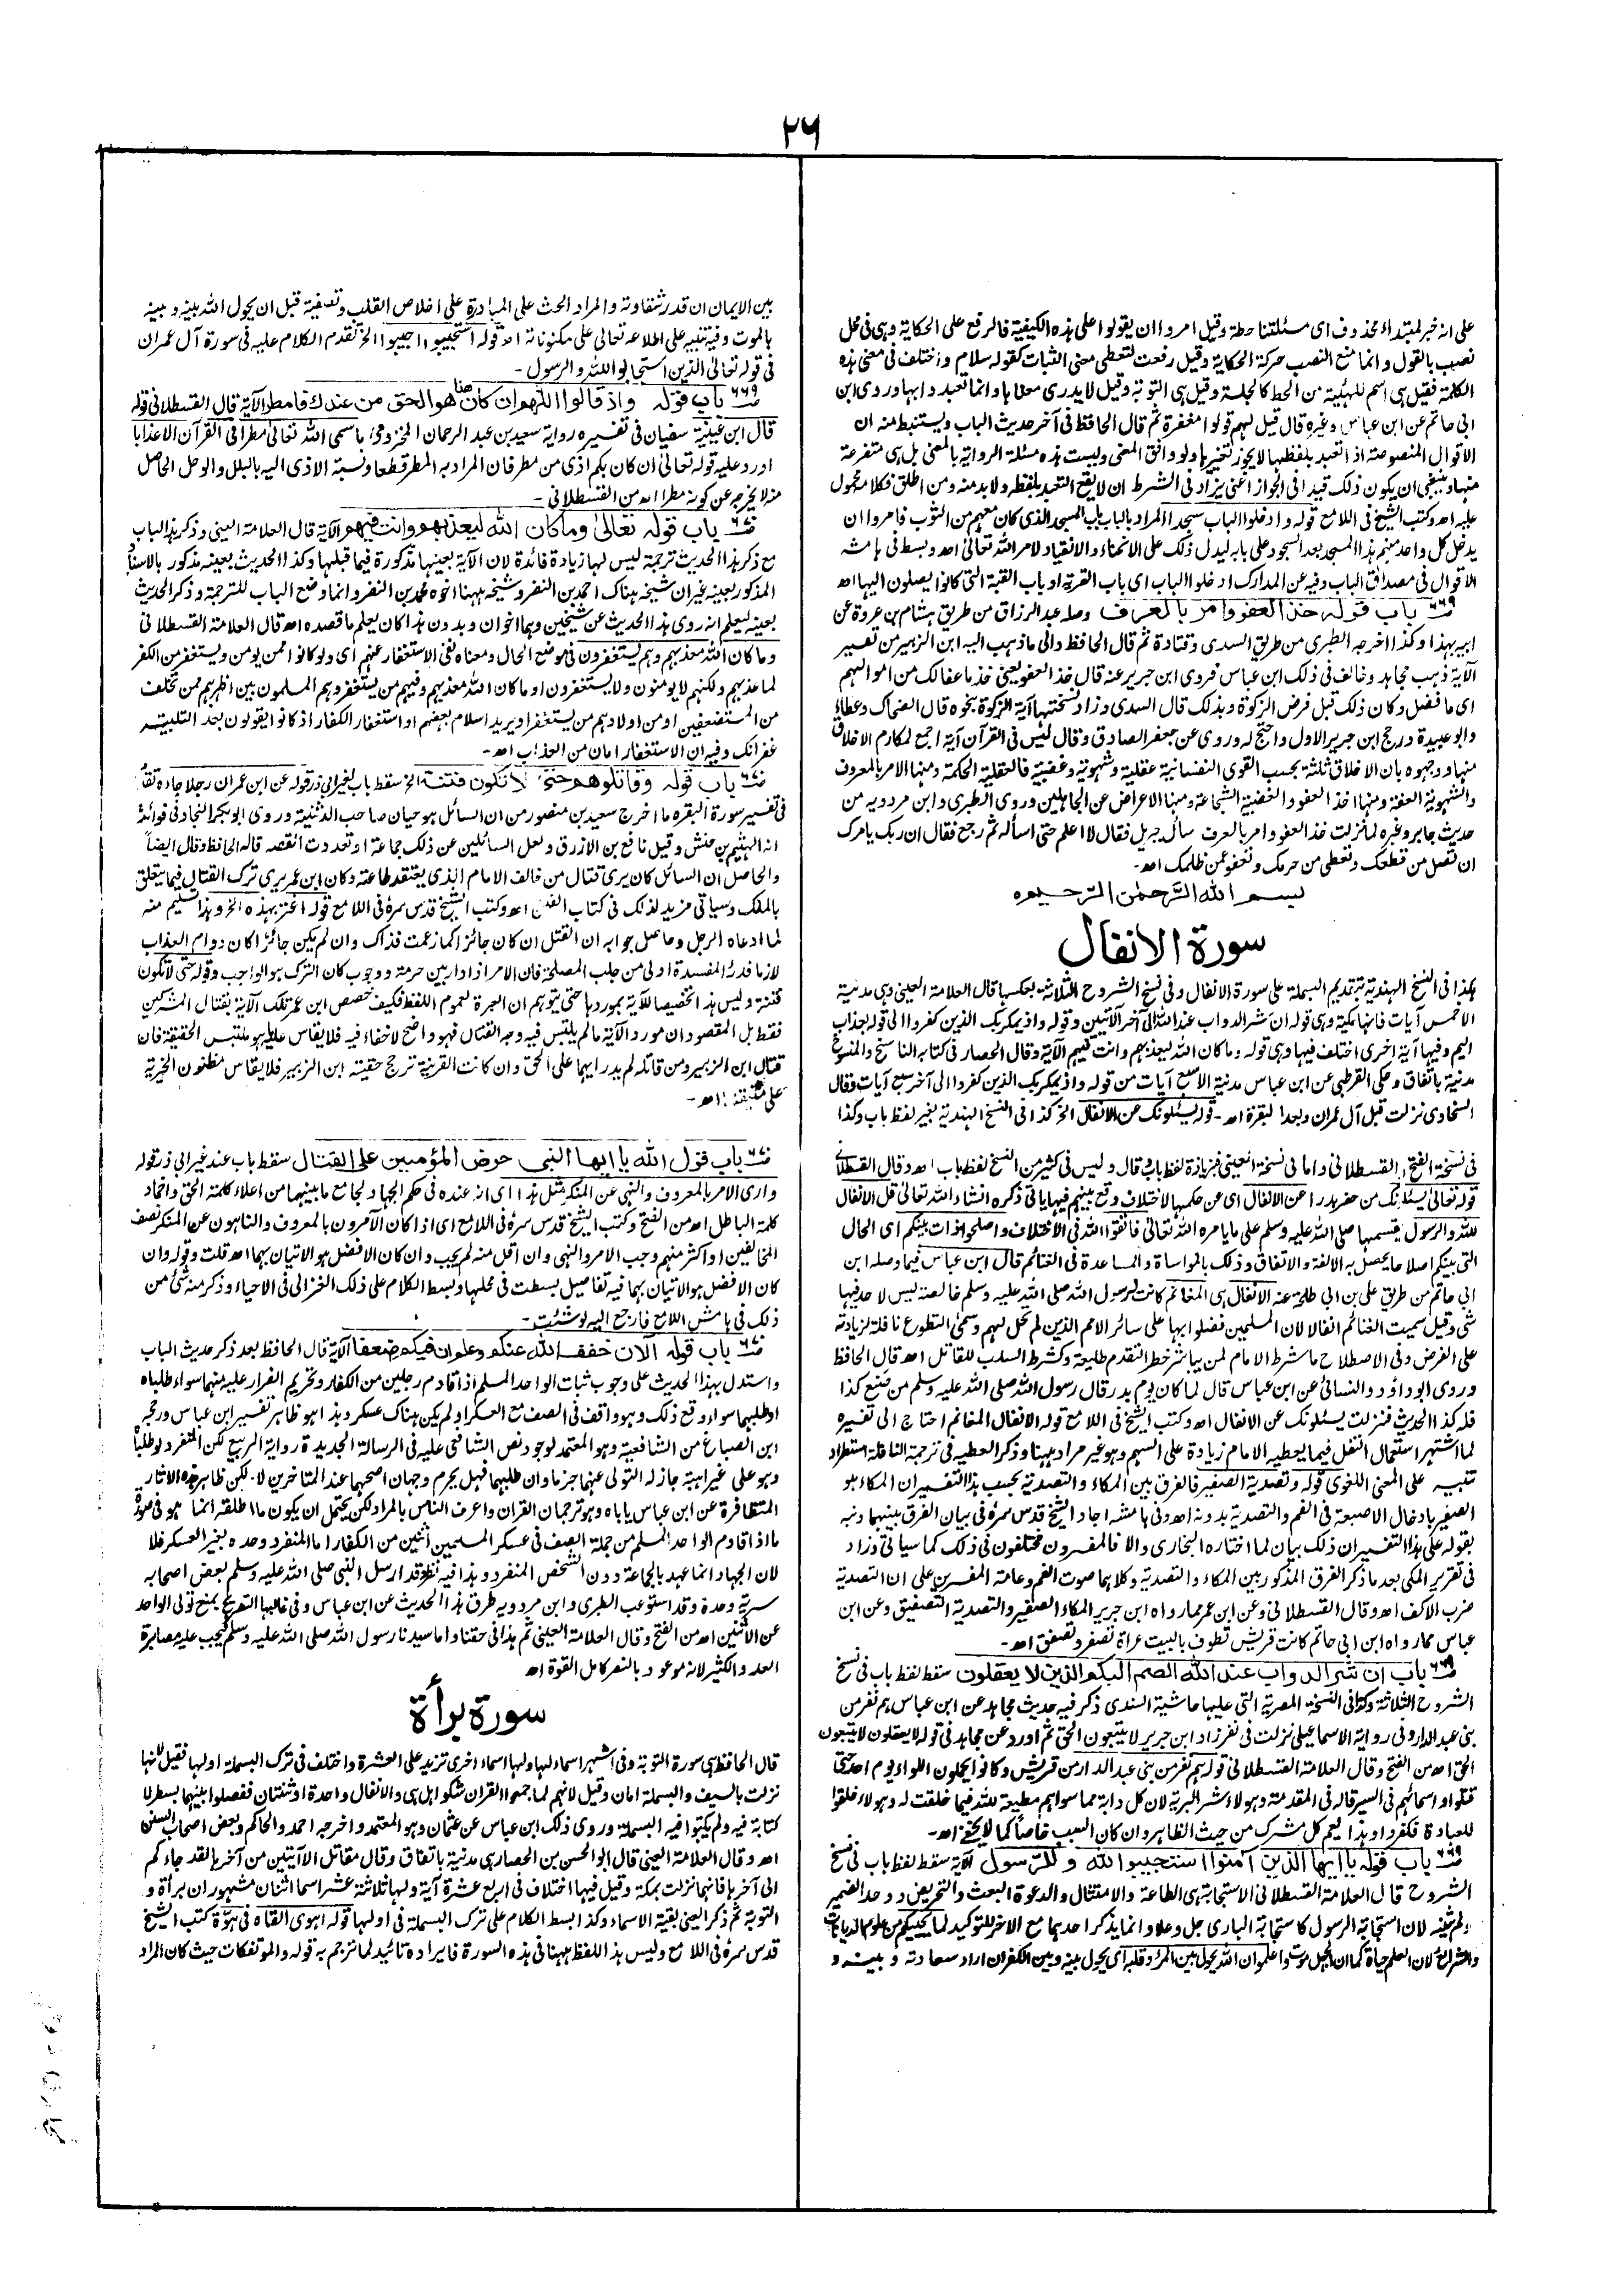 ۲۶
على انه خبر لمبتداء محذوف اى مسئلتنا حطة وقيل امروا ان يقولوا على هذه الكيفية فالرفع على الحكاية وهى فى محل
نصب بالقول وانما منع النصب حركة الحكاية وقيل رفعت لتعطى معنى الثبات كقوله سلام واختلف فى معنى هذه
الكلمة فقيل هى اسم للهيئة من الحط كالجلسة وقيل هى التوبة وقيل لا يدرى معناها وانما تعبدوا بها وروى ابن
ابى حاتم عن ابن عباس وغيره قال قيل لهم قولوا مغفرة ثم قال الحافظ فى آخر حديث الباب ويستنبط منه ان
الاقوال المنصوصة اذا تعبد بلفظها لا يجوز تغييرها ولو وافق المعنى وليست هذه مسئلة الرواية بالمعنى بل هى متفرعة
منها وينبغى ان يكون ذلك قيدا فى الجواز اعنى يزاد فى الشرط ان لا يقع التعبد بلفظه ولا بد منه ومن اطلق فكلامه محمول
عليه اھ وكتب الشيخ فى اللامع قوله وادخلوا الباب سجدا المراد بالباب باب المسجد الذى كان معهم من الثوب فامروا ان
يدخل كل واحد منهم هذا المسجد بعد السجود على بابه ليدل ذلك على الانحناء والانقياد لامر الله تعالى اھ وبسط فى هامشه
الاقوال فى مصداق الباب وفيه عن المدارك ادخلوا الباب اى باب القرية او باب القبة التى كانوا يصلون اليها اھ
۶۶۹ باب قوله خذ العفو وامر بالعرف وصله عبد الرزاق من طريق هشام بن عروة عن
ابيه بهذا وكذا اخرجه الطبرى من طريق السدى وقتادة ثم قال الحافظ والى ما ذهب اليه ابن الزبير من تفسير
الآية ذهب مجاهد وخالف فى ذلك ابن عباس فروى ابن جرير عنه قال خذ العفو يعنى خذ ما عفا لك من اموالهم
اى ما فضل وكان ذلك قبل فرض الزكوة وبذلك قال السدى وزاد نسختها آية الزكوة بنحوه قال الضحاك وعطاء
وابو عبيدة ورجح ابن جرير الاول واحتج له وروى عن جعفر الصادق وقال ليس فى القرآن آية اجمع لمكارم الاخلاق
منها ووجهوه بان الاخلاق ثلثة بحسب القوى النفسانية عقلية وشهوية وغضبية فالعقلية الحكمة ومنها الامر بالمعروف
والشهوية العفة ومنها اخذ العفو والغضبية الشجاعة ومنها الاعراض عن الجاهلين وروى الطبرى وابن مردويه من
حديث جابر وغيره لما نزلت خذ العفو وامر بالعرف سأل جبريل فقال لا اعلم حتى اسأله ثم رجع فقال ان ربك يامرك
ان تصل من قطعك وتعطى من حرمك وتعفو عمن ظلمك اھ۔
بسم الله الرحمن الرحيم
سورة الانفال
هكذا فى النسخ الهندية بتقديم البسملة على سورة الانفال وفى نسخ الشروح الثلاثة بعكسها قال العلامة العينى وهى مدنية
الا خمس آيات فانها مكية وهى قوله ان شر الدواب عند الله الى آخر الآيتين وقوله واذ يمكر بك الذين كفروا الى قوله بعذاب
اليم وفيها آية اخرى اختلف فيها وهى قوله وما كان الله ليعذبهم وانت فيهم الآية وقال الحصار فى كتابه الناسخ والمنسوخ
مدنية باتفاق وحكى القرطبى عن ابن عباس مدنية الا سبع آيات من قوله واذ يمكر بك الذين كفروا الى آخر سبع آيات فقال
السخاوى نزلت قبل آل عمران وبعد البقرة اھ۔ قوله يسئلونك عن الانفال الخ كذا فى النسخ الهندية بغير لفظ باب وكذا
فى نسخة الفتح والقسطلانى واما فى نسخة العينى فبزيادة لفظ باب وقال وليس فى كثير من النسخ لفظ باب اھ وقال القسطلانى
قوله تعالى يسئلونك من حضر بدرا عن الانفال اى عن حكمها لاختلاف وقع بينهم فيها ياتى ذكره انشاء الله تعالى قل الانفال
لله والرسول يقسمها صلى الله عليه وسلم على ما يامره الله تعالى فاتقوا الله فى الاختلاف واصلحوا ذات بينكم اى الحال
التى بينكم اصلاحا يحصل به الالفة والاتفاق وذلك بالمواساة والمساعدة فى الغنائم قال ابن عباس فيما وصله ابن
ابى حاتم من طريق على بن ابى طلحة عنه الانفال هى المغانم كانت لرسول الله صلى الله عليه وسلم خالصة ليس لاحد فيها
شئ وقيل سميت الغنائم انفالا لان المسلمين فضلوا بها على سائر الامم الذين لم تحل لهم وسمى التطوع نافلة لزيادته
على الفرض وفى الاصطلاح ما شرط الامام لمن يباشر خطرا كتقدم طليعة وكشرط السلب للقاتل اھ قال الحافظ
وروى ابو داؤد والنسائى عن ابن عباس قال لما كان يوم بدر قال رسول الله صلى الله عليه وسلم من صنع كذا
فله كذا الحديث فنزلت يسئلونك عن الانفال اھ وكتب الشيخ فى اللامع قوله الانفال المغانم احتاج الى تفسيره
لما اشتهر استعمال النفل فيما يعطيه الامام زيادة على السهم وهو غير مراد ههنا وذكر العطية فى ترجمة النافلة استطراد
تنبيه على المعنى اللغوى قوله وتصدية الصفير فالفرق بين المكاء والتصدية بحسب هذا التفسير ان المكاء هو
الصفير بادخال الاصبعة فى الفم والتصدية بدونه اھ وفى هامشه اجاد الشيخ قدس سره فى بيان الفرق بينهما ونبه
بقوله على هذا التفسير ان ذلك بيان لما اختاره البخارى والا فالمفسرون مختلفون فى ذلك كما سياتى وزاد
فى تقرير المكى بعد ما ذكر الفرق المذكور بين المكاء والتصدية وكلاهما صوت الفم وعامة المفسرين على ان التصدية
ضرب الاكف اھ وقال القسطلانى وعن ابن عمر مما رواه ابن جرير المكاء الصفير والتصدية التصفيق وعن ابن
عباس مما رواه ابن ابى حاتم كانت قريش تطوف بالبيت عراة تصفر وتصفق اھ۔
۶۶۹ باب ان شر الدواب عند الله الصم البكم الذين لا يعقلون سقط لفظ باب فى نسخ
الشروح الثلاثة وكذا فى النسخة المصرية التى عليها حاشية السندى ذكر فيه حديث مجاهد عن ابن عباس هم نفر من
بنى عبد الدار وفى رواية الاسماعيلى نزلت فى نفر زاد ابن جرير لا يتبعون الحق ثم اورد عن مجاهد فى قوله لا يعقلون لا يتبعون
الحق اھ من الفتح وقال العلامة القسطلانى قوله هم نفر من بنى عبد الدار من قريش وكانوا يحملون اللواء يوم احد حتى
قتلوا واسمائهم فى السير قاله فى المقدمة وهولاء شر البرية لان كل دابة مما سواهم مطيعة لله فيما خلقت له وهولاء خلقوا
للعبادة فكفروا وهذا يعم كل مشرك من حيث الظاهر وان كان السبب خاصا كما لا يخفى اھ۔
۶۶۹ باب قوله يا ايها الذين آمنوا استجيبوا لله وللرسول الآية سقط لفظ باب فى نسخ
الشروح قال العلامة القسطلانى الاستجابة هى الطاعة والامتثال والدعوة البعث والتحريض ووحد الضمير
ولم يثنه لان استجابة الرسول كاستجابة البارى جل وعلا وانما يذكر احدهما مع الآخر للتوكيد لما يحييكم من علوم الديانات
والشرائع لان العلم حياة كما ان الجهل موت واعلموا ان الله يحول بين المرء وقلبه اى يحول بينه وبين الكفر ان اراد سعادته وبينه و
بين الايمان ان قدر شقاوته والمراد الحث على المبادرة على اخلاص القلب وتصفيته قبل ان يحول الله بينه وبينه
بالموت وفيه تنبيه على اطلاعه تعالى على مكنوناته اھ قوله استجيبوا اجيبوا الخ تقدم الكلام عليه فى سورة آل عمران
فى قوله تعالى الذين استجابوا لله والرسول۔
۶۶۹ باب قوله واذ قالوا اللهم ان كان هذا هو الحق من عندك فامطر الآية قال القسطلانى قوله
قال ابن عيينة سفيان فى تفسيره رواية سعيد بن عبد الرحمان المخزومى ما سمى الله تعالى مطرا فى القرآن الا عذابا
اورد عليه قوله تعالى ان كان بكم اذى من مطر فان المراد به المطر قطعا ونسبة الاذى اليه بالبلل والوحل الحاصل
منه لا يخرجه عن كونه مطرا اھ من القسطلانى۔
۶۷۰ باب قوله تعالى وما كان الله ليعذبهم وانت فيهم الآية قال العلامة العينى وذكر هذا الباب
مع ذكر هذا الحديث ترجمة ليس لها زيادة فائدة لان الآية بعينها مذكورة فيما قبلها وكذا الحديث بعينه مذكور بالاسناد
المذكور بعينه غير ان شيخه هناك احمد بن النضر وشيخه ههنا اخوه محمد بن النضر وانما وضع الباب للترجمة وذكر الحديث
بعينه ليعلم انه روى هذا الحديث عن شيخين وهما اخوان وبدون هذا كان يعلم ما قصده اھ قال العلامة القسطلانى
وما كان الله معذبهم وهم يستغفرون فى موضع الحال ومعناه نفى الاستغفار عنهم اى ولو كانوا ممن يومن ويستغفر من الكفر
لما عذبهم ولكنهم لا يومنون ولا يستغفرون او ما كان الله معذبهم وفيهم من يستغفر وهم المسلمون بين اظهرهم ممن تخلف
من المستضعفين او من اولادهم من يستغفر او يريد اسلام بعضهم او استغفار الكفار اذ كانوا يقولون بعد التلبية
غفرانك وفيه ان الاستغفار امان من العذاب اھ۔
۶۷۰ باب قوله وقاتلوهم حتى لا تكون فتنة الخ سقط باب لغير ابى ذر قوله عن ابن عمر ان رجلا جاءه تقدم
فى تفسير سورة البقرة ما اخرج سعيد بن منصور من ان السائل هو حيان صاحب الدثنية وروى ابو بكر النجاد فى فوائده
انه الهيثم بن حنش وقيل نافع بن الازرق ولعل السائلين عن ذلك جماعة او تعددت القصة قاله الحافظ وقال ايضا
والحاصل ان السائل كان يرى قتال من خالف الامام الذى يعتقد طاعته وكان ابن عمر يرى ترك القتال فيما يتعلق
بالملك وسياتى مزيد لذلك فى كتاب الفتن اھ وكتب الشيخ قدس سره فى اللامع قوله اغتر بهذه الخ وهذا تسليم منه
لما ادعاه الرجل وحاصل جوابه ان القتل ان كان جائزا كما زعمت فذاك وان لم يكن جائزا كان دوام العذاب
لازما فدرء المفسدة اولى من جلب المصلحة فان الامر اذا دار بين حرمة ووجوب كان الترك هو الواجب وقوله حتى لا تكون
فتنة وليس هذا تخصيصا للآية بموردها حتى يتوهم ان العبرة لعموم اللفظ فكيف خصص ابن عمر تلك الآية بقتال المشركين
فقط بل المقصود ان مورد الآية ما لم يلتبس فيه وجه القتال فهو واضح لا خفاء فيه فلا يقاس عليه ما هو ملتبس الحقيقة فان
قتال ابن الزبير ومن قاتله لم يدر ايهما على الحق وان كانت القرينة ترجح حقية ابن الزبير فلا يقاس مظنون الخيرية
على متيقنة اھ۔
۶۷۰ باب قول الله يا ايها النبى حرض المؤمنين على القتال سقط باب عند غير ابى ذر قوله
وارى الامر بالمعروف والنهى عن المنكر مثل هذا اى انه عنده فى حكم الجهاد لجامع ما بينهما من اعلاء كلمة الحق واخماد
كلمة الباطل اھ من الفتح وكتب الشيخ قدس سره فى اللامع اى اذا كان الآمرون بالمعروف والناهون عن المنكر نصف
المخالفين او اكثر منهم وجب الامر والنهى وان اقل منه لم يجب وان كان الافضل هو الاتيان بهما اھ قلت وقوله وان
كان الافضل هو الاتيان بهما فيه تفاصيل بسطت فى محلها وبسط الكلام على ذلك الغزالى فى الاحياء وذكر منه شئ من
ذلك فى هامش اللامع فارجع اليه لو شئت۔
۶۷۰ باب قوله الآن خفف الله عنكم وعلم ان فيكم ضعفا الآية قال الحافظ بعد ذكر حديث الباب
واستدل بهذا الحديث على وجوب ثبات الواحد المسلم اذا قاوم رجلين من الكفار وتحريم الفرار عليه منهما سواء طلباه
او طلبهما سواء وقع ذلك وهو واقف فى الصف مع العسكر او لم يكن هناك عسكر وهذا هو ظاهر تفسير ابن عباس ورجحه
ابن الصباغ من الشافعية وهو المعتمد لوجود نص الشافعى عليه فى الرسالة الجديدة رواية الربيع لكن المنفرد لو طلباه
وهو على غير اهبة جاز له التولى عنهما جزما وان طلبهما فهل يحرم وجهان اصحهما عند المتاخرين لا لكن ظاهر هذه الاثار
المتظافرة عن ابن عباس ياباه وهو ترجمان القران واعرف الناس بالمراد لكن يحتمل ان يكون ما اطلقه انما هو فى صورة
ما اذا قاوم الواحد المسلم من جملة الصف فى عسكر المسلمين اثنين من الكفار اما المنفرد وحده بغير العسكر فلا
لان الجهاد انما عهد بالجماعة دون الشخص المنفرد وهذا فيه نظر فقد ارسل النبى صلى الله عليه وسلم بعض اصحابه
سرية وحدة وقد استوعب الطبرى وابن مردويه طرق هذا الحديث عن ابن عباس وفى غالبها التصريح بمنع تولى الواحد
عن الاثنين اھ من الفتح وقال العلامة العينى ثم هذا فى حقنا واما سيدنا رسول الله صلى الله عليه وسلم فيجب عليه مصابرة
العدد الكثير لانه موعود بالنصر كامل القوة اھ
سورة برأة
قال الحافظ هى سورة التوبة وهى اشهر اسماءها ولها اسماء اخرى تزيد على العشرة واختلف فى ترك البسملة اولها فقيل لانها
نزلت بالسيف والبسملة امان وقيل لانهم لما جمعوا القران شكوا هل هى والانفال واحدة او ثنتان ففصلوا بينهما بسطر لا
كتابة فيه ولم يكتبوا فيه البسملة وروى ذلك ابن عباس عن عثمان وهو المعتمد واخرجه احمد والحاكم وبعض اصحاب السنن
اھ وقال العلامة العينى قال ابو الحسن بن الحصار هى مدنية باتفاق وقال مقاتل الا آيتين من آخرها لقد جاءكم
الى آخرها فانهما نزلت بمكة وقيل فيها اختلاف فى اربع عشرة آية ولها ثلاثة عشر اسما اثنان مشهوران برأة و
التوبة ثم ذكر العينى بقية الاسماء وكذا بسط الكلام على ترك البسملة فى اولها قوله اهوى القاه فى هوة كتب الشيخ
قدس سره فى اللامع وليس هذا اللفظ ههنا فى هذه السورة فايراده تائيد لما ترجم به قوله والموتفكات حيث كان المراد